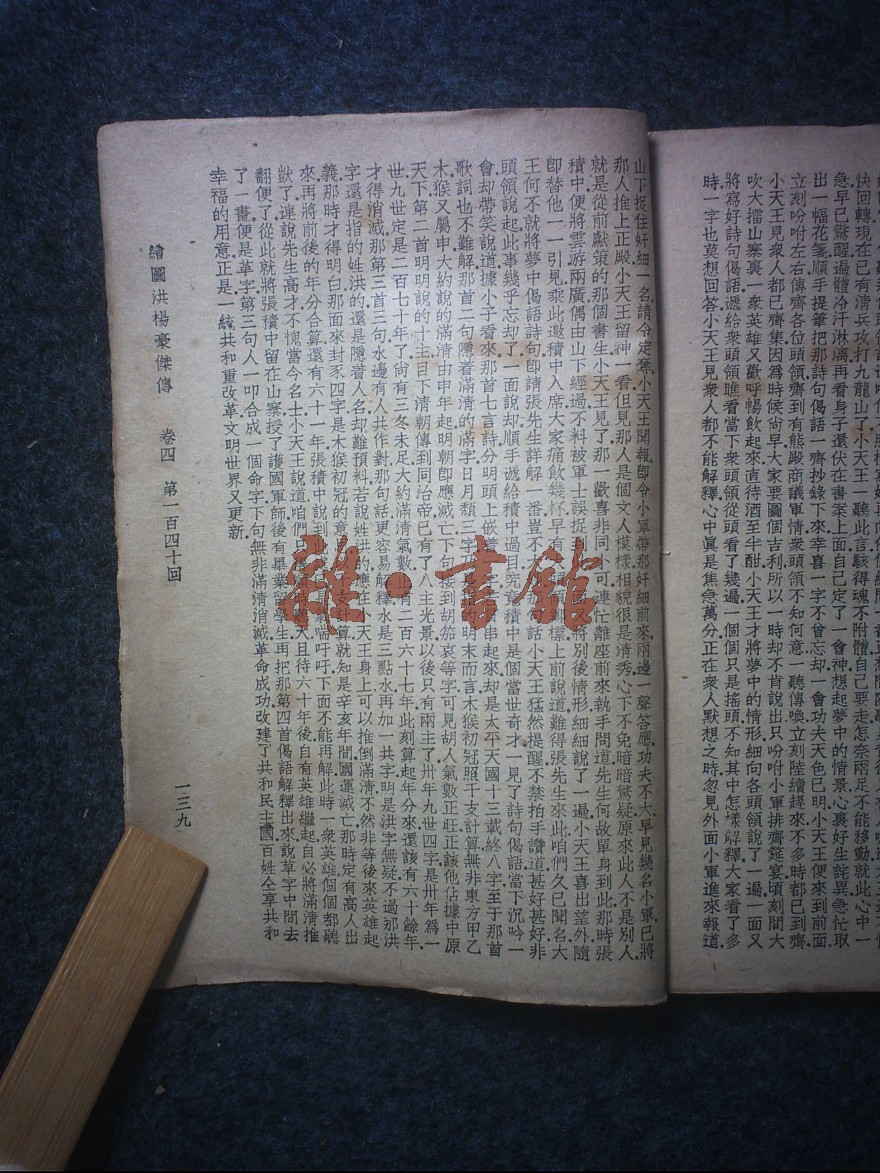 快回轉現在已有清兵攻打九龍山了小天王一聽此言駭得魂不附體自己要走怎奈兩足不能移動就此心中一
急早已驚醒遍體冷汗淋漓再看身子還伏在書案上面自己定了一會神想起夢中的情景心裏好生詫異急忙取
出一幅花箋順手提筆把那詩句偈語一齊抄錄下來幸喜一字不曾忘却一會功夫天色已明小天王便來到前面
立刻吩咐左右傳齊各位頭領齊到有熊殿商議軍情衆頭領不知何意一聽傳喚立刻陸續趕來不多時都已到齊
小天王見衆人都已齊集因爲時候尙早大家要圖個吉利所以一時却不肯說出只吩咐小軍排齊筵宴頃刻間大
吹大擂山寨裏一衆英雄又歡呼暢飲起來直待酒至半酣小天王才將夢中的情形細向各頭領說了一遍一面又
將寫好詩句偈語遞給衆頭領瞧看當下衆頭領從頭看了幾遍一個個只是搖頭不知其中怎樣解釋大家看了多
時一字也莫想回答小天王見衆人都不能解釋心中眞是焦急萬分正在衆人默想之時忽見外面小軍進來報道
山下捉住奸細一名請令定奪小天王聞報卽令小軍帶那奸細前來兩邊一聲答應功夫不大早見幾名小軍已將
那人推上正殿小天王留神一看但見那人是個文人模樣相貌很是淸秀心下不免暗暗驚疑原來此人不是別人
就是從前獻策的那個書生小天王見了那一歡喜非同小可連忙離座前來執手問道先生何故單身到此那時張
積中便將雲游兩廣偶由山下經過不料被軍士誤捉
又將別後情形細細說了一遍小天王喜出望外隨
卽替他一一引見衆此邀積中入席大家痛飲幾杯早有
標上前說道難得張先生來此咱們久已聞名大
王何不就將夢中偈語詩句卽請張先生詳解一番豈不
話小天王猛然提醒不禁拍手讚道甚好甚好非
頭領說起此事幾乎忘却了一面說却順手遞給積中過目究竟積中是個當世奇才一見了詩句偈語當下沉吟一
會却帶笑說道據小子看來那首七言詩分明頭上嵌
串起來却是太平天國十三載終八字至于那首
歌詞也不難解那首二句隱着滿清的滿字日月類三字
的明末而言木猴初冠照干支計算無非東方甲乙
木猴又屬申大約說的滿清由申年起明朝卽應滅亡下句說到胡笳哀等字可見胡人氣數正旺正該他佔據中原
天下第二首明明說的十主目下清朝傳到同治帝已有了八主光景以後只有兩主了卅年九世四字是卅年爲一
世九世定是二百七十年了尙有三冬未足大約滿清氣數止有二百六十七年此刻算起年分來還該有六十餘年
才得消滅那第三首三句水邊有人共作對那句話更容易解釋水是三點水再加一共字明是洪字無疑不過那洪
字還是指的姓洪的還是隱着人名却難預料若說姓洪的應在
天王身上可以推倒滿清不然非等後來英雄起
義那時才得明白那面來封豕四字是木猴初冠的意
支計算就知是辛亥年間國運滅亡那時定有高人出
來再將前後的年分合算還有六十一年張積中說到此
氣喘吁吁下面不能再解此時一衆英雄個個都聽
獃了連說先生高才不愧當今名士小天王說道咱們只
大且待六十年後自有英雄繼起自必將滿清推
翻便了從此就將張積中留在山寨授了護國軍師後有畢業留學生再把那第四首偈語解釋出來說草字中間去
了一畫便是革字第三句人一叩合成一個命字下句無非滿清消滅革命成功改建了共和民主國百姓仝享共和
幸福的用意正是一統共和重改革文明世界又更新
繪圖洪楊豪傑傳 卷四 第一百四十回 一三九
雜·書館